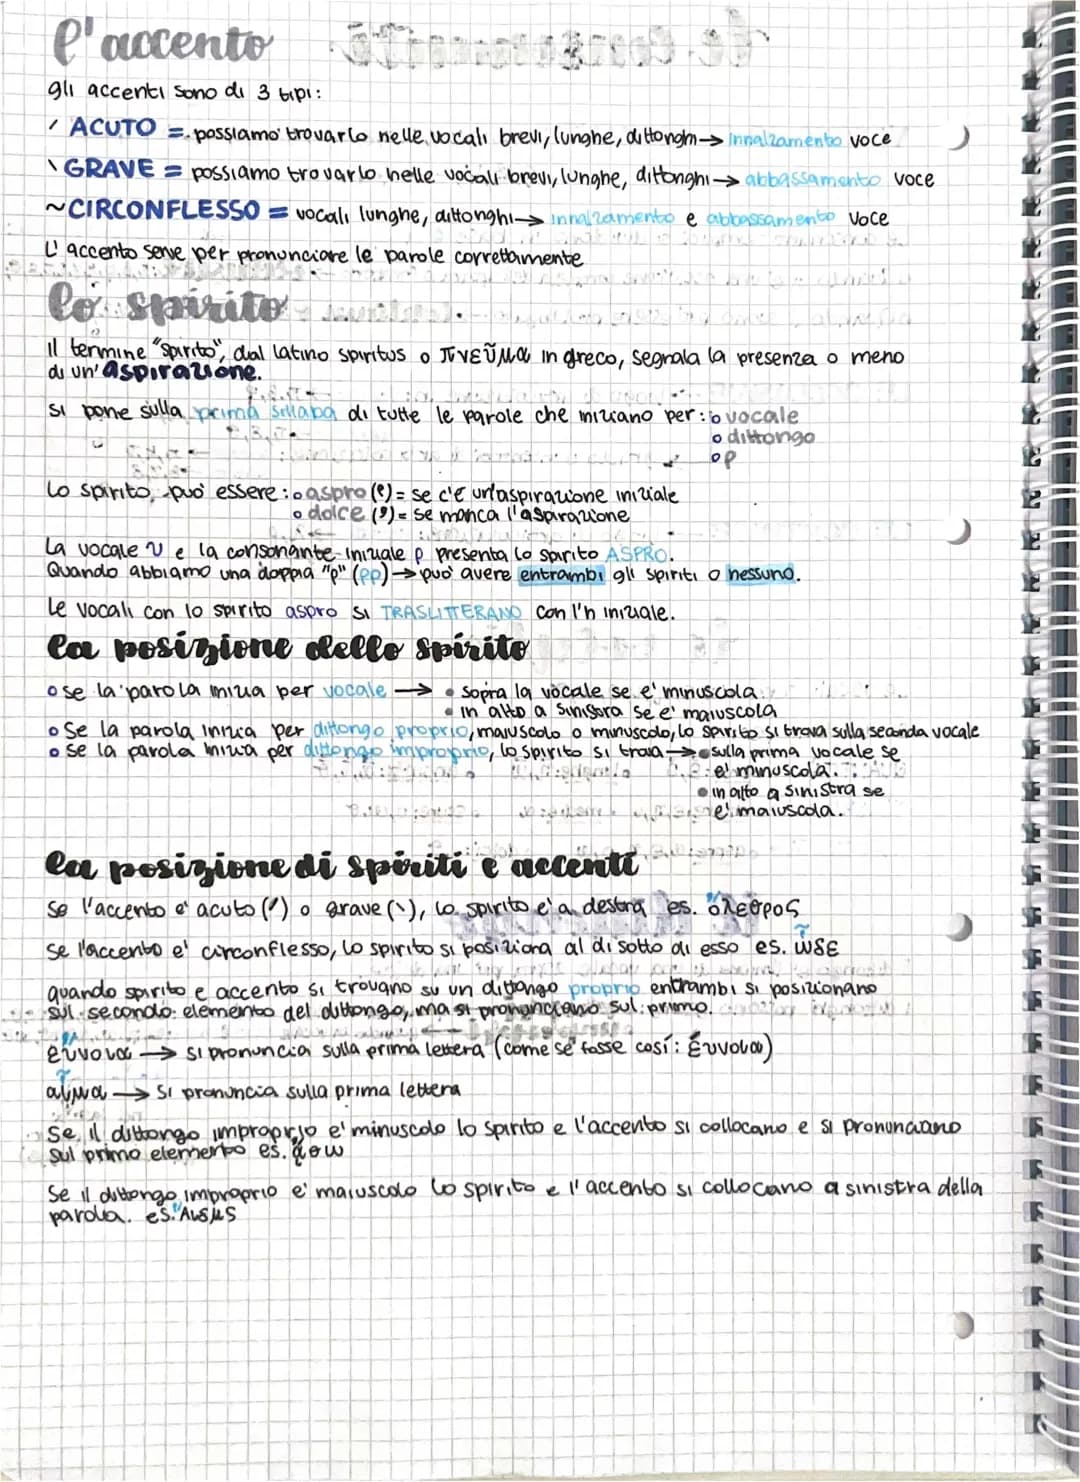 l'accento
gli accenti sono di 3 tipi:
´ ACUTO = possiamo trovarlo nelle vocali brevi, lunghe, dittonghi → innalzamento voce
` GRAVE = possiamo trovarlo nelle vocali brevi, lunghe, dittonghi → abbassamento voce
~ CIRCONFLESSO = vocali lunghe, dittonghi → innalzamento e abbassamento voce
L'accento serve per pronunciare le parole correttamente
lo spirito
il termine "spirito", dal latino spiritus o πνεῦμα in greco, segnala la presenza o meno
di un'aspirazione.
si pone sulla prima sillaba di tutte le parole che iniziano per: o vocale
o dittongo
o ρ
Lo spirito può essere: o aspro (῾) = se c'è un'aspirazione iniziale
o dolce (᾿) = se manca l'aspirazione
La vocale υ e la consonante iniziale ρ presenta lo spirito ASPRO.
Quando abbiamo una doppia "ρ" (ρρ) → può avere entrambi gli spiriti o nessuno.
Le vocali con lo spirito aspro si TRASLITTERANO con l'h iniziale.
la posizione dello spirito
o se la parola inizia per vocale → • sopra la vocale se e' minuscola
• in alto a sinistra se e' maiuscola
o Se la parola inizia per dittongo proprio, maiuscolo o minuscolo, lo spirito si trova sulla seconda vocale
o se la parola inizia per dittongo improprio, lo spirito si trova → • sulla prima vocale se
e' minuscola.
• in alto a sinistra se
e' maiuscola.
la posizione di spiriti e accenti
Se l'accento e' acuto (´) o grave (`), lo spirito e' a destra es. ὄλεθρος
se l'accento e' circonflesso, lo spirito si posiziona al di sotto di esso es. ὦδε
quando spirito e accento si trovano su un dittongo proprio entrambi si posizionano
sul secondo elemento del dittongo, ma si pronunciano sul primo.
εὔνοια → si pronuncia sulla prima lettera (come se fosse così: ἔυνοια)
αἷμα → si pronuncia sulla prima lettera
Se il dittongo improprio e' minuscolo lo spirito e l'accento si collocano e si pronunciano
sul primo elemento es.
Se il dittongo improprio e' maiuscolo lo spirito e l'accento si collocano a sinistra della
parola. es.